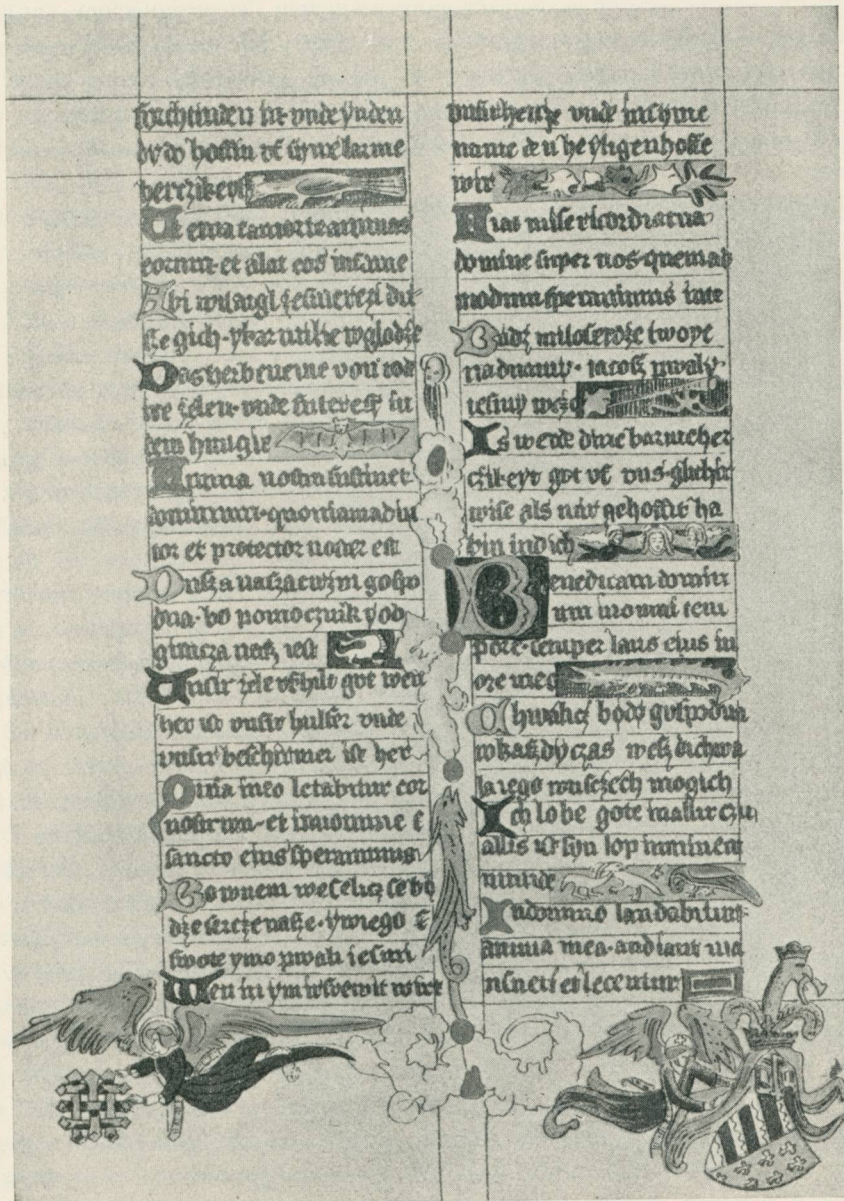 vorchtinden in unde ynden
dy do hoffin uf syne barme
herczikeyt
Ut eruat a morte animas
eorum et alat eos in fame
Abi wilargl gesm
sze gich y karmilbe wglodze
Das her beneme von tode
ire zelen unde
dem hungir
Anima nostra sustinet
dominum quoniam adiu
tor et protector noster est
Dusza nasza cirzpi gospo
dna bo pomocznik y ob
gimcza nasz iest
Unsir zele got wen
her ist unsir hulfer unde
unsir beschirmer ist her
Quia in eo letabitur cor
nostrum et in nomine
sancto eius speravimus
Bo w nem weselicz se bo
dze sercze nasze y w iego
swote ymo pwali iesmi
Wen in ym irvrewit wirt
unsir hercze unde in syme
name den heyligen hoffe
wir
Fiat misericordia tua
domine super nos quemad
modum speravimus in te
Badz miloserdze twoye
nad nami iacosz pwaly
iesmy w cze
Is werde dine barmeher
czikeyt got uf uns glichir
wise als wir gehoffit ha
bin in dich
Benedicam domin
um in omni tem
pore semper laus eius in
ore meo
Chwalicz bodo gospodna
w kaszdy czas wesz dy chwa
la iego w usczech mogich
Ich lobe gote in allir czit
allis ist syn lop in minem
munde
In domino laudabitur
anima mea audiant ma
nsueti et letentur